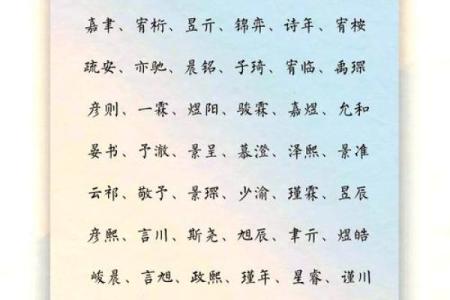 嘉聿、宥析、昱亓、锦弈、诗年、宥桉
疏安、亦驰、晨铭、子琦、宥临、禹琛
彦则、一霖、煜阳、骏霖、嘉煜、允和
晏书、予澈、景呈、慕澄、泽熙、景准
云祁、敬予、景琛、少渝、瑾霖、昱辰
彦熙、言川、斯尧、旭辰、聿亓、煜皓
峻晨、言旭、政熙、瑾年、星睿、谨川